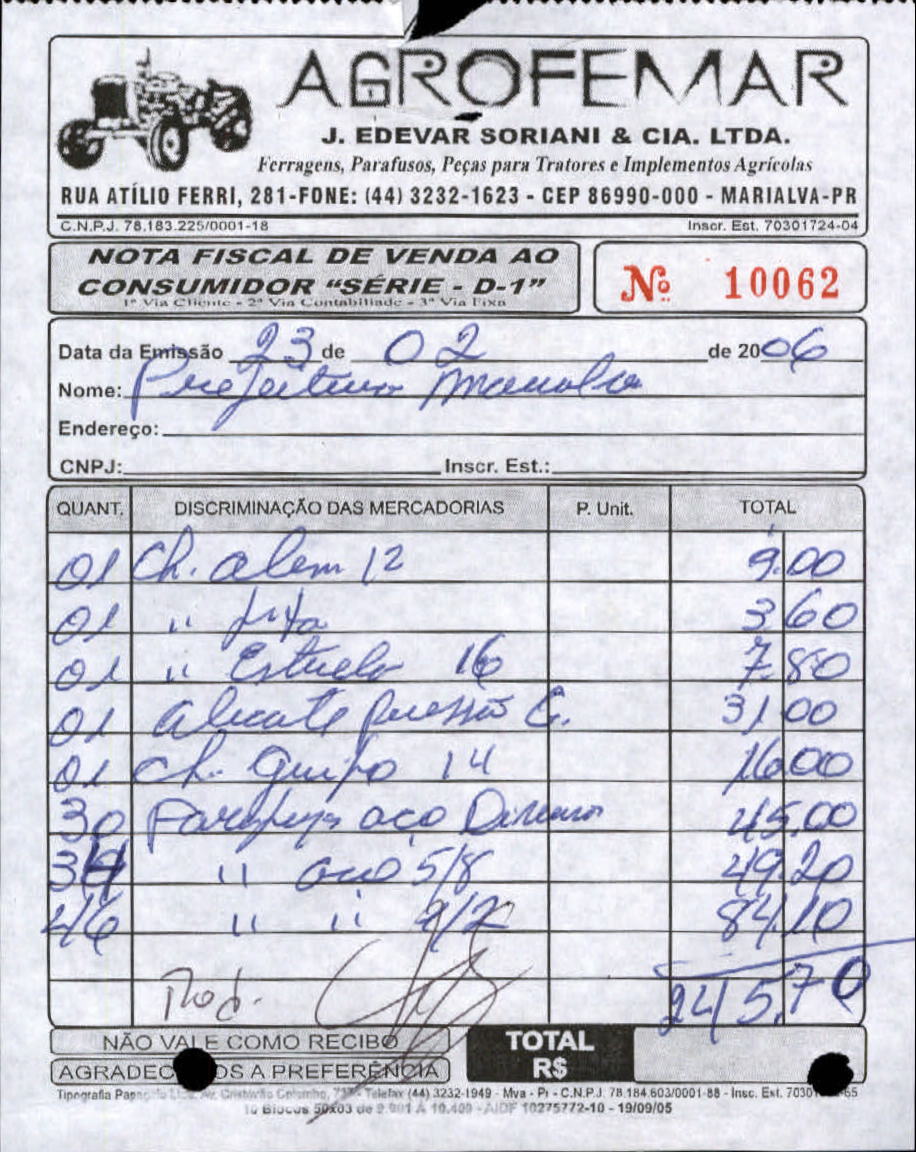 AGROFEMAR
J. EDEVAR SORIANI & CIA. LTDA.
Ferragens, Parafusos, Peças para Tratores e Implementos Agrícolas
RUA ATÍLIO FERRI, 281-FONE: (44) 3232-1623 - CEP 86990-000 - MARIALVA-PR
C.N.P.J. 78.183.225/0001-18 Inscr. Est. 70301724-04
NOTA FISCAL DE VENDA AO
CONSUMIDOR “SÉRIE - D-1”
1ª Via Cliente - 2ª Via Contabiliade - 3ª Via Fixa
Nº 10062
Data da Emissão 23 de 02 de 2006
Nome: Prefeitura Marialva
Endereço:
CNPJ: Inscr. Est.:
QUANT. DISCRIMINAÇÃO DAS MERCADORIAS P. Unit. TOTAL
01 Ch. alem 12 9.00
01 " 3,60
01 " Estrela 16 7.80
01 alicate pressão 31.00
01 Ch. Grifo 14 16.00
30 Parafuso aço 45.00
" aço 5/8 49.20
46 " " 1/2 84.10
245,70
NÃO VALE COMO RECIBO
AGRADEC OS A PREFERÊNCIA
TOTAL
R$
Tipografia Telefax (44) 3232-1949 - Mva - Pr - C.N.P.J. 78.184.603/0001-88 - Insc. Est. 65
10 Blocos 50x03 de 9.901 À 10.400 - AIDF 10275772-10 - 19/09/05